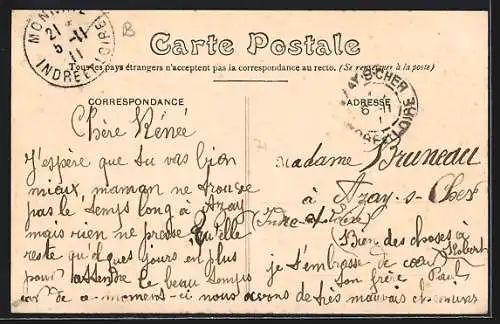 MONNAIE
21
5 -11
11
INDRE ET LOIRE
B
Carte Postale
Tous les pays étrangers n'acceptent pas la correspondance au recto. (Se renseigner à la poste)
CORRESPONDANCE
ADRESSE
AZAY S CHER
6 -11
INDRE ET LOIRE
Chère Rénée
J'espère que tu vas bien
mieux, maman ne trouve
pas le temps long à Azay
mais rien ne presse qu'elle
reste quelques jours en plus
pour attendre le beau temps
car de ce moment-ci nous avons de très mauvais
Madame Bruneau
à Azay-s-Cher
(Indre-et-Loire)
(Bien des choses à Robert
je t'embrasse de cœur
ton frère Paul